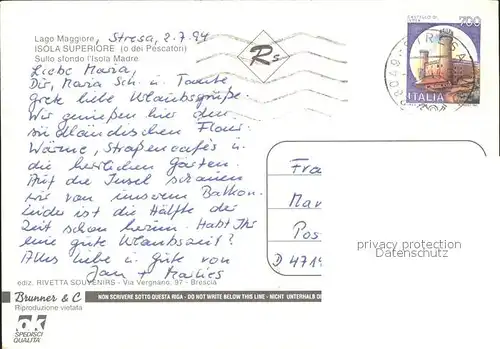 Lago Maggiore, Stresa, 2.7.94
ISOLA SUPERIORE (o dei Pescatori)
Sullo sfondo l'Isola Madre
Rs
700
CASTELLO DI
ITALIA
Liebe Maria,
Dir, Maria Sch. u. Tante
Grete liebe Urlaubsgrüße.
Wir genießen hier den
südländischen Flair
Wärme, Straßencafés u.
die herrlichen Gärten.
Auf die Insel schauen
wir von unserem Balkon.
Leider ist die Hälfte der
Zeit schon herum. Habt Ihr
eine gute Urlaubszeit?
Alles Liebe u. Gute von
Jan + Marlies
Fra
Mar
Pos
D 4719
privacy protection
Datenschutz
ediz. RIVETTA SOUVENIRS - Via Vergnano, 97 - Brescia
Brunner & C
NON SCRIVERE SOTTO QUESTA RIGA - DO NOT WRITE BELOW THIS LINE - NICHT UNTERHALB D
Riproduzione vietata
SPEDISCI
QUALITÀ